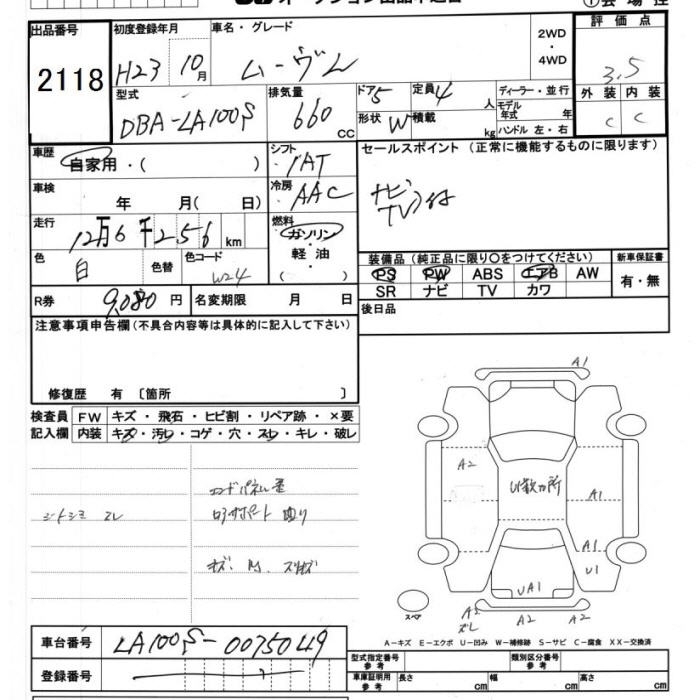 出品番号
2118
初度登録年月
H23 10月
車名・グレード
ムーヴL
2WD
・
4WD
評価点
3.5
外装 内装
C C
型式
DBA-LA100S
排気量
660
CC
ドア 5
定員 4 人
形状 W
積載 kg
ディーラー・並行
モデル年式 年
ハンドル 左・右
車歴
自家用・( )
シフト
IAT
冷房
AAC
車検
年 月( 日)
走行
12万6千256 km
燃料
ガソリン
・
軽油
( )
色
白
色替
色コード
W24
R券
9,080 円
名変期限 月 日
セールスポイント(正常に機能するものに限ります)
ナビ
TV付
装備品(純正品に限り〇をつけてください)
PS PW ABS エアB AW
SR ナビ TV カワ
新車保証書
有・無
後日品
注意事項申告欄(不具合内容等は具体的に記入して下さい)
修復歴 有〔箇所 〕
検査員
記入欄
FW キズ・飛石・ヒビ割・リペア跡・×要
内装 キズ・汚レ・コゲ・穴・スレ・キレ・破レ
シートシミ スレ
エンドパネル歪
ロアサポート曲り
A1
A2
U数カ所
A1
A1
U1
UA1
A2
A2
スペア
A-キズ E-エクボ U-凹み W-補修跡 S-サビ C-腐食 XX-交換済
車台番号
LA100S-0075049
登録番号
型式指定番号
参考
類別区分番号
参考
車庫証明用
参考
長さ cm
幅 cm
高さ cm